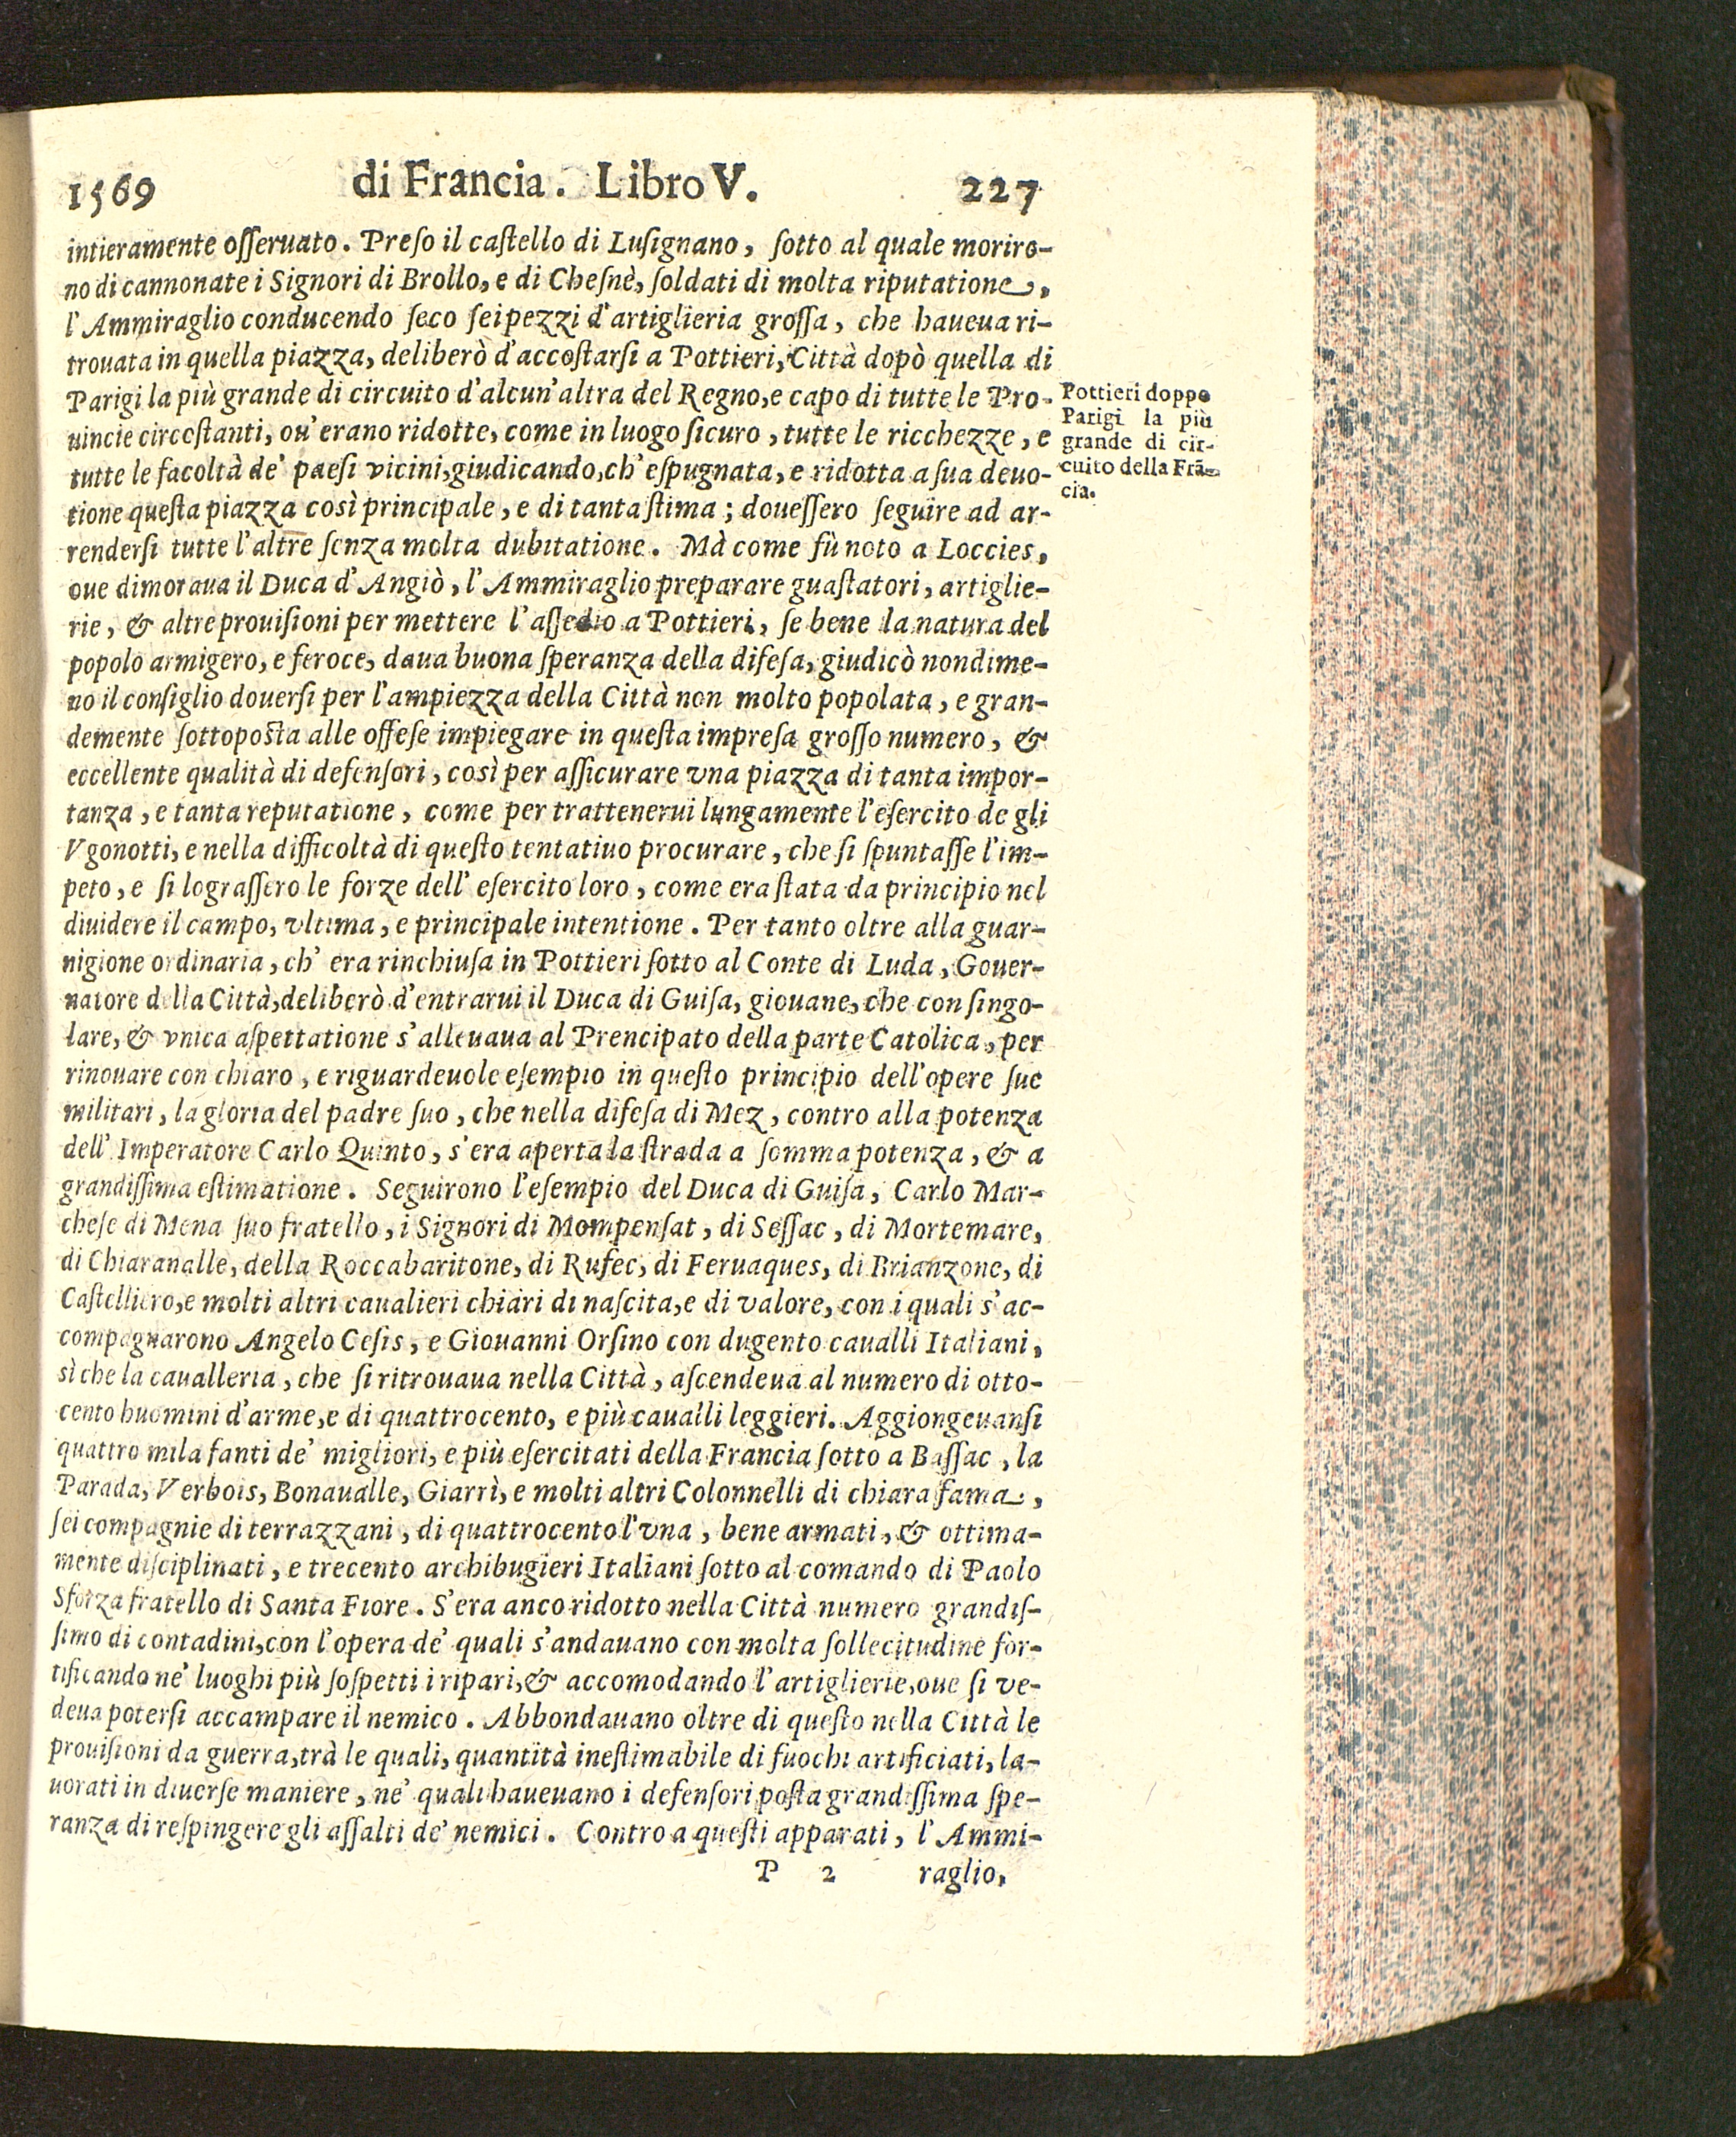 1569 di Francia. Libro V. 227
intieramente oſſeruato. Preſo il caſtello di Luſignano, ſotto al quale moriro-
no di cannonate i Signori di Brollo, e di Cheſnè, ſoldati di molta riputatione,
l'Ammiraglio conducendo ſeco ſei pezzi d'artiglieria groſſa, che haueua ri-
trouata in quella piazza, deliberò d'accoſtarſi a Pottieri, Città dopò quella di
Parigi la più grande di circuito d'alcun'altra del Regno, e capo di tutte le Pro-
uincie circoſtanti, ou'erano ridotte, come in luogo ſicuro, tutte le ricchezze, e
tutte le facoltà de' paeſi vicini, giudicando, ch'eſpugnata, e ridotta a ſua deuo-
tione queſta piazza così principale, e di tanta ſtima; doueſſero ſeguire ad ar-
renderſi tutte l'altre ſenza molta dubitatione. Mà come fù noto a Loccies,
oue dimoraua il Duca d'Angiò, l'Ammiraglio preparare guaſtatori, artiglie-
rie, & altre prouiſioni per mettere l'aſſedio a Pottieri, ſe bene la natura del
popolo armigero, e feroce, daua buona ſperanza della difeſa, giudicò nondime-
no il conſiglio douerſi per l'ampiezza della Città non molto popolata, e gran-
demente ſottopoſta alle offeſe impiegare in queſta impreſa groſſo numero, &
eccellente qualità di defenſori, così per aſſicurare vna piazza di tanta impor-
tanza, e tanta reputatione, come per trattenerui lungamente l'eſercito de gli
Vgonotti, e nella difficoltà di queſto tentatiuo procurare, che ſi ſpuntaſſe l'im-
peto, e ſi lograſſero le forze dell'eſercito loro, come era ſtata da principio nel
diuidere il campo, vltima, e principale intentione. Per tanto oltre alla guar-
nigione ordinaria, ch'era rinchiuſa in Pottieri ſotto al Conte di Luda, Gouer-
natore della Città, deliberò d'entrarui il Duca di Guiſa, giouane, che con ſingo-
lare, & vnica aſpettatione s'alleuaua al Prencipato della parte Catolica, per
rinouare con chiaro, e riguardeuole eſempio in queſto principio dell'opere ſue
militari, la gloria del padre ſuo, che nella difeſa di Mez, contro alla potenza
dell'Imperatore Carlo Quinto, s'era aperta la ſtrada a ſomma potenza, & a
grandiſſima eſtimatione. Seguirono l'eſempio del Duca di Guiſa, Carlo Mar-
cheſe di Mena ſuo fratello, i Signori di Mompenſat, di Seſſac, di Mortemare,
di Chiaranalle, della Roccabaritone, di Rufec, di Feruaques, di Brianzone, di
Caſtelliero, e molti altri caualieri chiari di naſcita, e di valore, con i quali s'ac-
compagnarono Angelo Ceſis, e Giouanni Orſino con dugento caualli Italiani,
sì che la caualleria, che ſi ritrouaua nella Città, aſcendeua al numero di otto-
cento huomini d'arme, e di quattrocento, e più caualli leggieri. Aggiongeuanſi
quattro mila fanti de' migliori, e più eſercitati della Francia ſotto a Baſſac, la
Parada, Verbois, Bonaualle, Giarrì, e molti altri Colonnelli di chiara fama,
ſei compagnie di terrazzani, di quattrocento l'vna, bene armati, & ottima-
mente diſciplinati, e trecento archibugieri Italiani ſotto al comando di Paolo
Sforza fratello di Santa Fiore. S'era anco ridotto nella Città numero grandiſ-
ſimo di contadini, con l'opera de' quali s'andauano con molta ſollecitudine for-
tificando ne' luoghi più ſoſpetti i ripari, & accomodando l'artiglierie, oue ſi ve-
deua poterſi accampare il nemico. Abbondauano oltre di queſto nella Città le
prouiſioni da guerra, trà le quali, quantità ineſtimabile di fuochi artificiati, la-
uorati in diuerſe maniere, ne' quali haueuano i defenſori poſta grandiſſima ſpe-
ranza di reſpingere gli aſſalti de' nemici. Contro a queſti apparati, l'Ammi-
P 2 raglio,
Pottieri doppo
Parigi la più
grande di cir-
cuito della Frã-
cia.